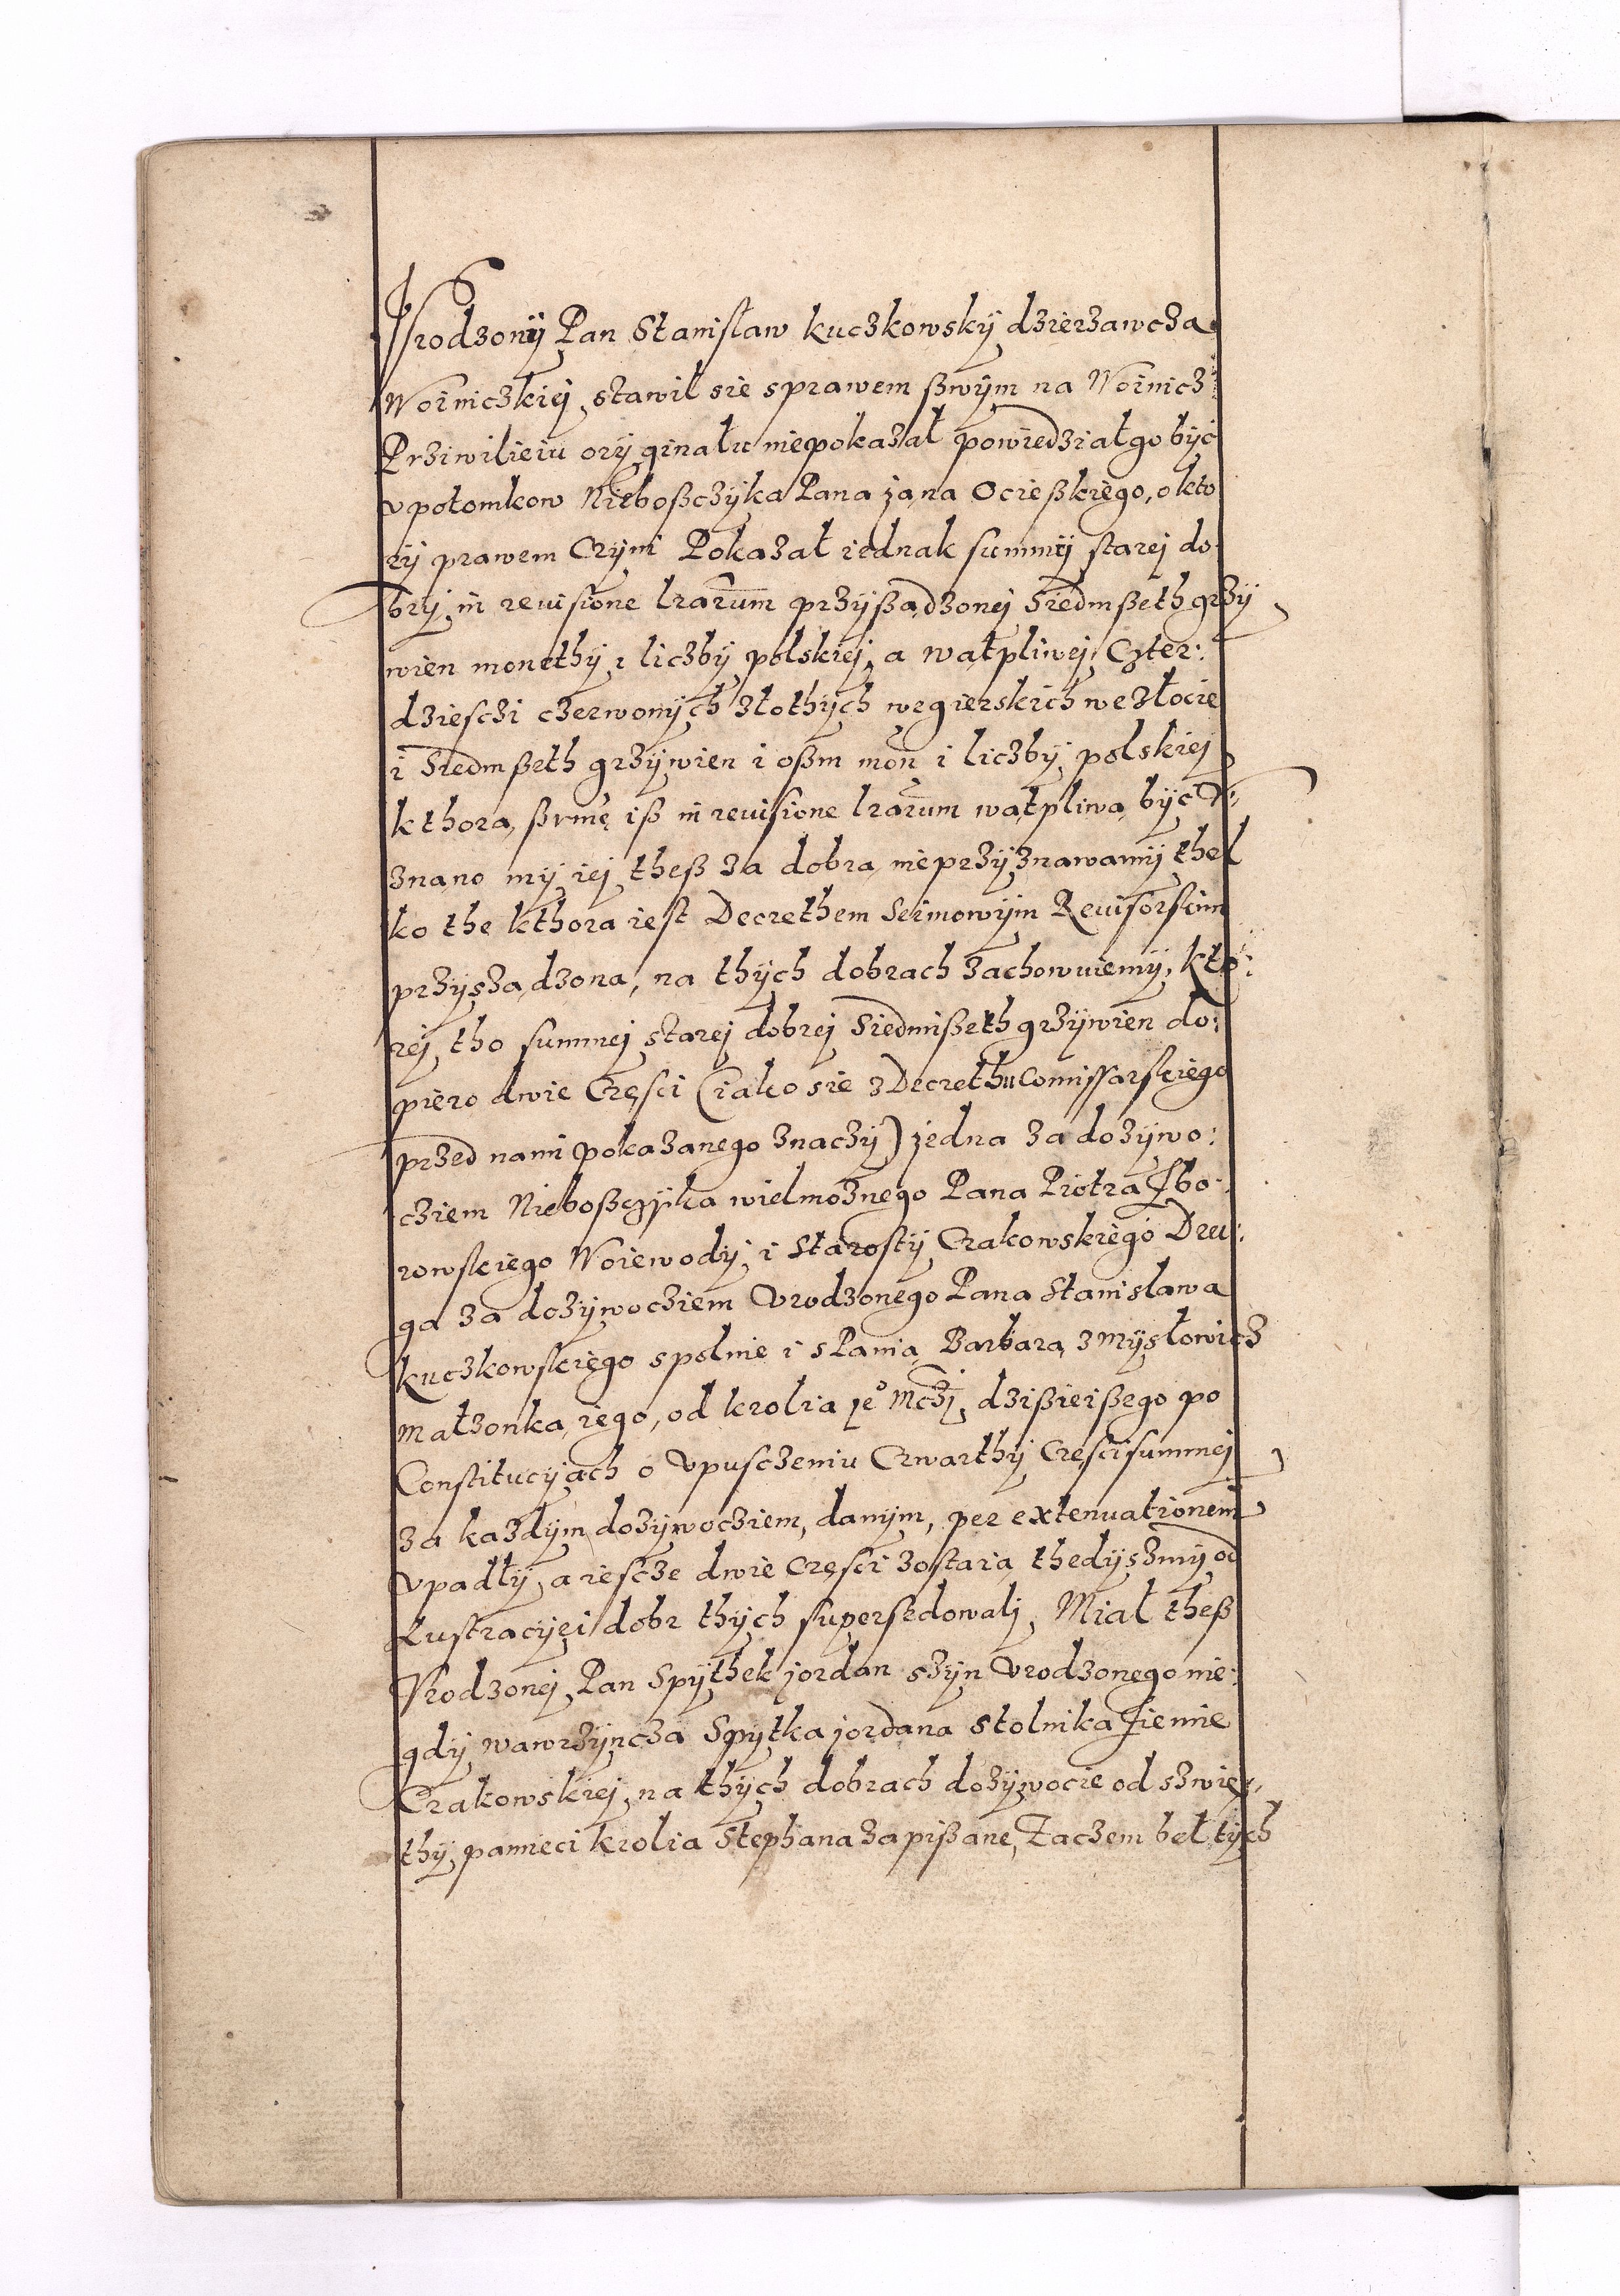 Vrodzonÿ Pan Stanisław kuczkowskÿ dzierzawcza
Woiniczkiej stawil sie sprawem ßwÿm na Woinicz
Prziwilieiu orÿginału niepokazał powiedział go bÿc
v potomkow Nieboßczÿka Pana jana Ocießkiego, o kto
rÿ prawem Czÿni Pokazał iednak summÿ starej do
brÿ in reuisione lrarum przÿßądzonej Siedmßeth grzÿ
wien monethÿ i liczbÿ polskiej a wątpliwej Czter:
dziesczi czerwonÿch złothÿch węgierskich we złocie
i Siedmßeth grzÿwien i oßm mon i liczbÿ polskiej
kthorą ßumę iß in reuisione lrarum wątpliwą bÿc v:
znano mÿ iej theß za dobrą nieprzÿznawamÿ thel
ko the kthora iest Decrethem Seimowÿm Reuisorskim
przÿsządzona, na thÿch dobrach zachowuiemÿ, kto:
rej tho summej starej dobrej Siedmißeth grzÿwien do:
piero dwie Częsci (iako sie z Decrethu Comissarskiego
przed nami pokazanego znaczÿ) jedna za dozÿwo:
cziem Nieboßczÿka wielmoznego Pana Piotra Zbo:
rowskiego Woiewodÿ i Starostÿ Crakowskiego Dru:
ga za dozÿwocziem Vrodzonego Pana Stanislawa
kuczkowskiego spolnie i s Panią Barbarą z Mÿsłowicz
małzonką iego, od krolia je° Mczi dzißieißego po
Constitucÿach o vpusczeniu Czwarthÿ Częsci summej
za kazdÿm dozÿwocziem, danÿm, per extenuationem
vpadłÿ a iescze dwie Częsci zostaią thedÿszmÿ od
Lustracÿei dobr thÿch supersedowalj. Miał theß
Vrodzonej Pan Spÿthek jordan szÿn Vrodzonego nie:
gdÿ wawrzÿncza Spytka jordana stolnika Ziemie
Crakowskiej na thÿch dobrach dozÿwocie od szwię:
thÿ pamieci krolia Stephana zapißane, Zaczem bel tÿch